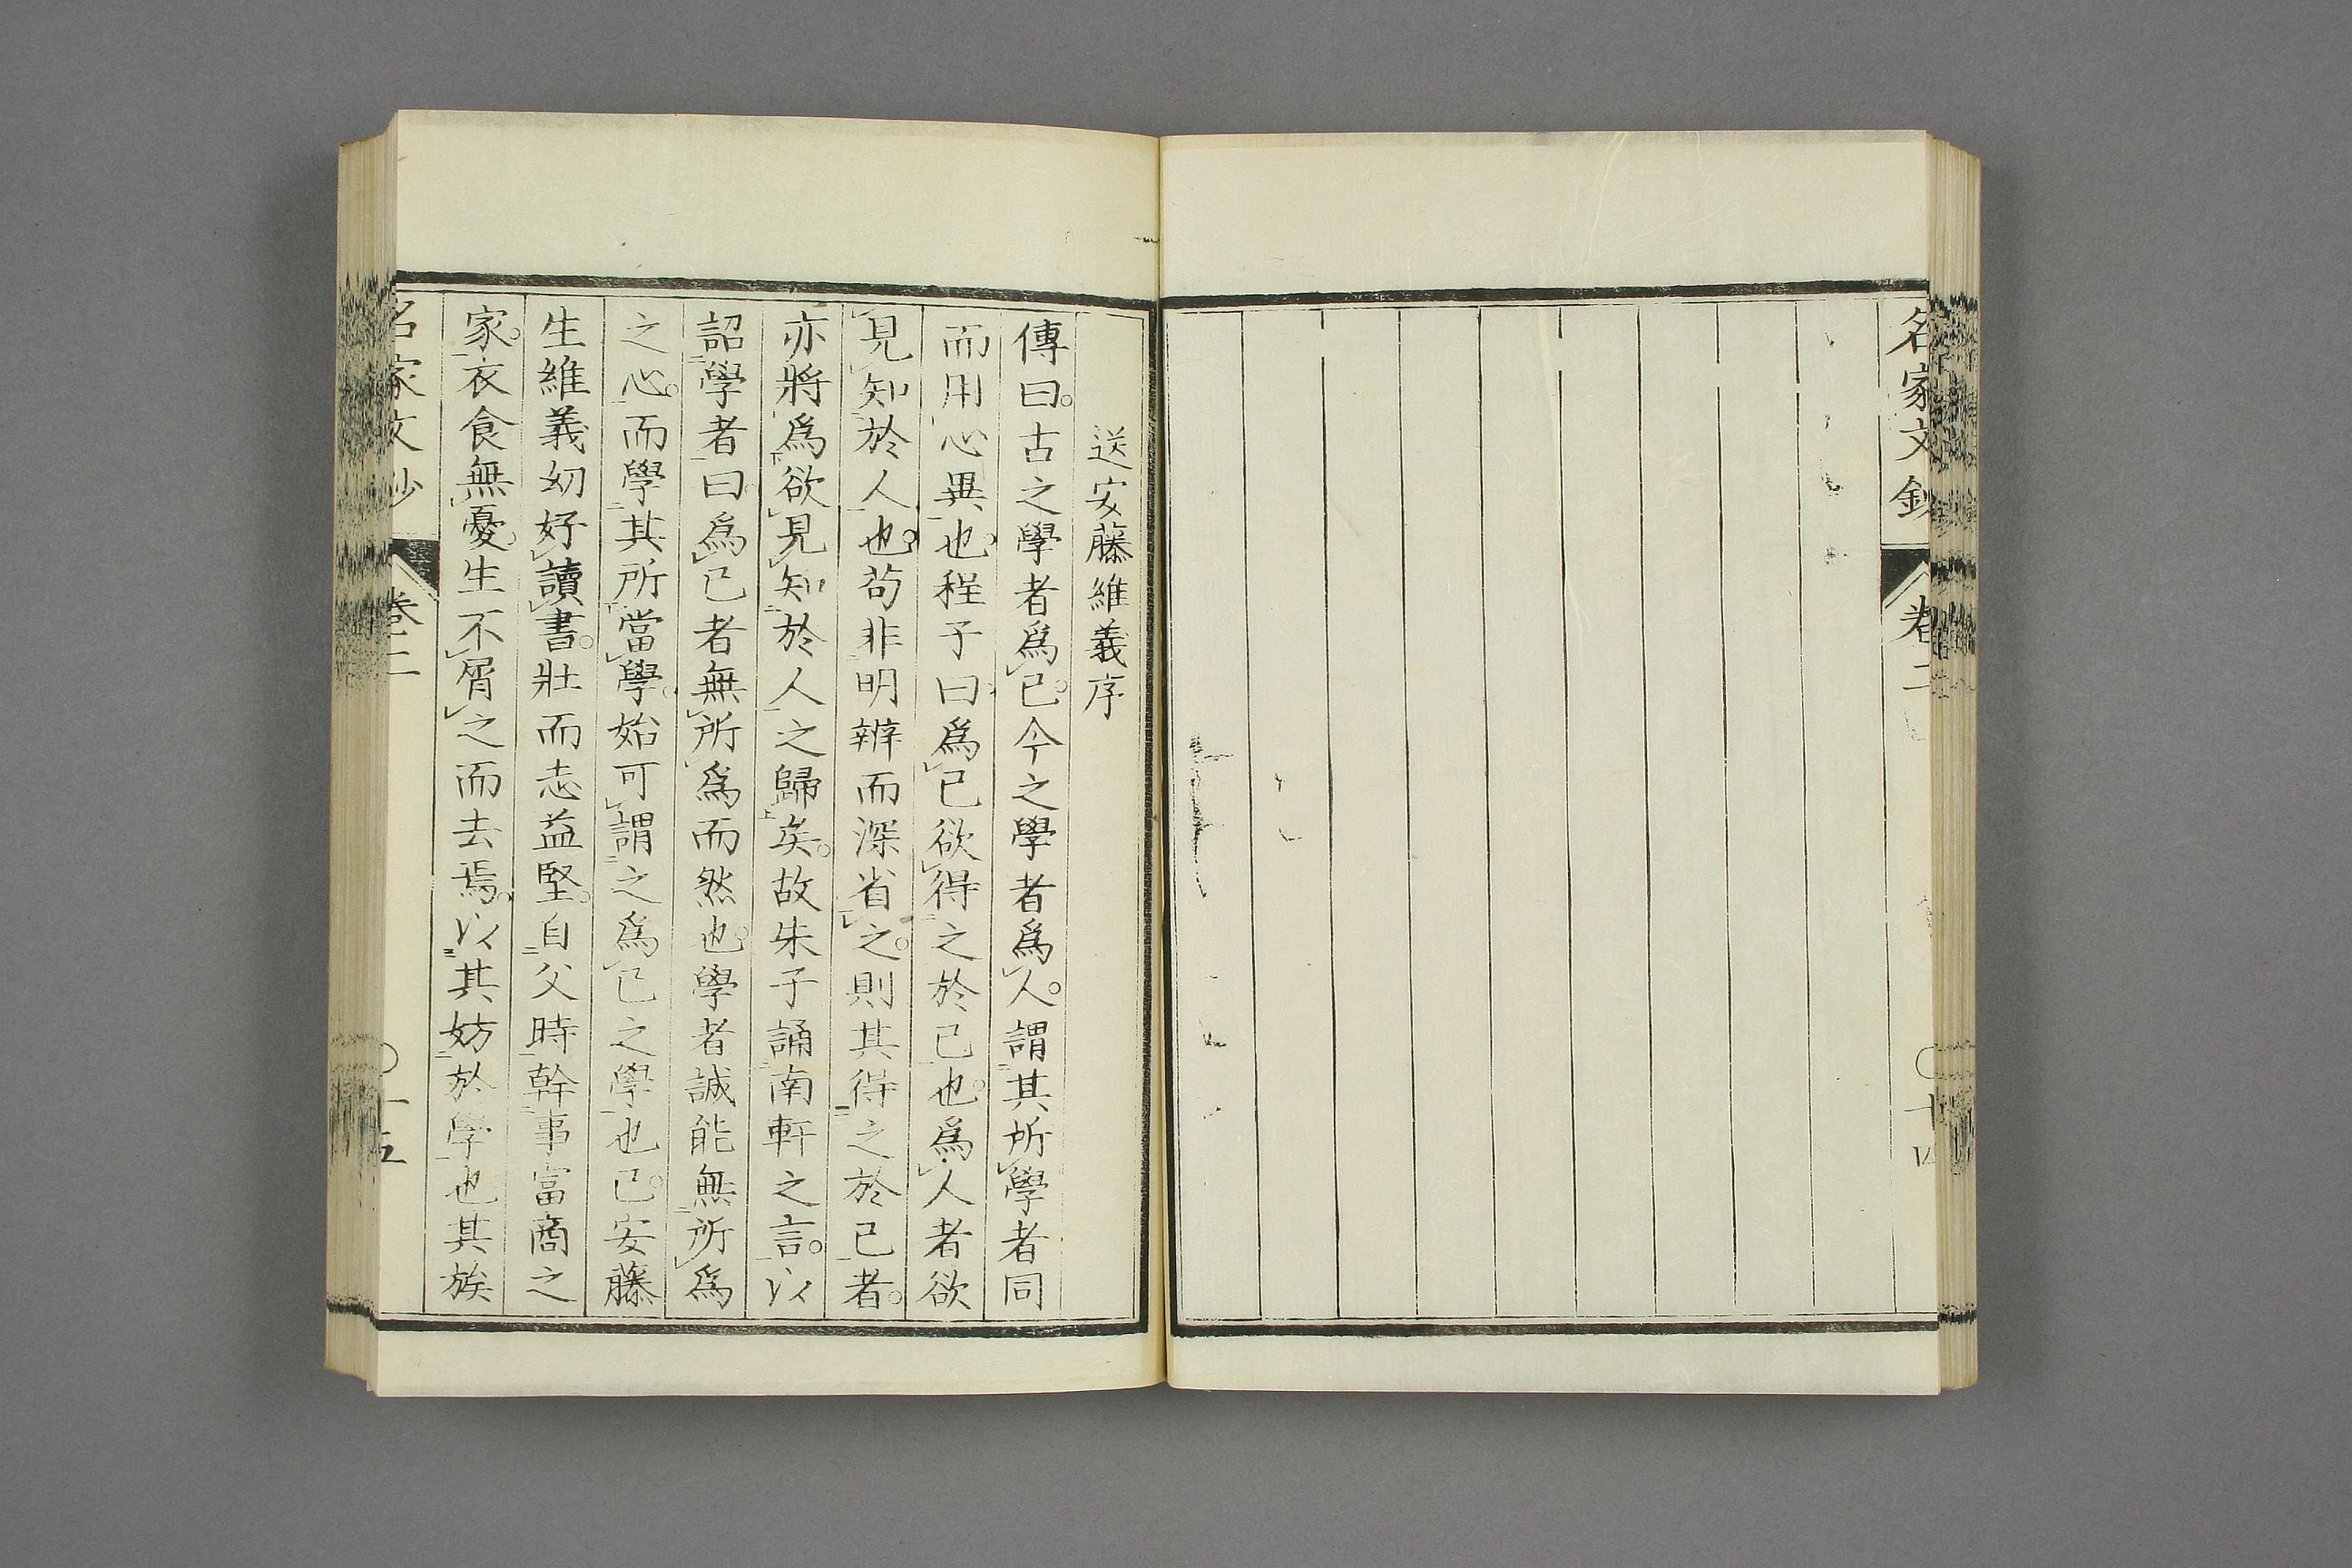 名家文鈔 卷二 〇十四
送安藤維義序
傳曰。古之學者爲己。今之學者爲人。謂其所學者同
而用心異也。程子曰。爲己欲得之於己也。爲人者欲
見知於人也。苟非明辨而深省之。則其得之於己者。
亦將爲欲見知於人之歸矣。故朱子誦南軒之言。以
詔學者曰。爲己者無所爲而然也。學者誠能無所爲
之心。而學其所當學。始可謂之爲己之學也已。安藤
生維義幼好讀書。壯而志益堅。自父時幹事富商之
家。衣食無憂。生不屑之而去焉。以其妨於學也其族
名家文鈔 卷二 〇十五